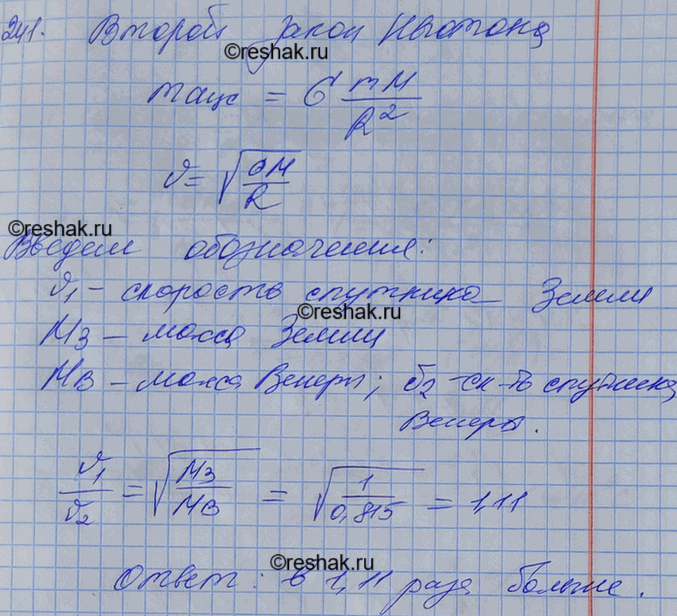 241. Второй закон Ньютона
©reshak.ru
maцс = G mM / R²
v = √(GM / R)
©reshak.ru
Введем обозначения:
v₁ – скорость спутника Земли
Mз – масса Земли
Mв – масса Венеры; v₂ – ск-ть спутника
Венеры.
v₁ / v₂ = √(Mз / Mв) = √(1 / 0,815) = 1,11
©reshak.ru
Ответ: в 1,11 раза больше.
©reshak.ru